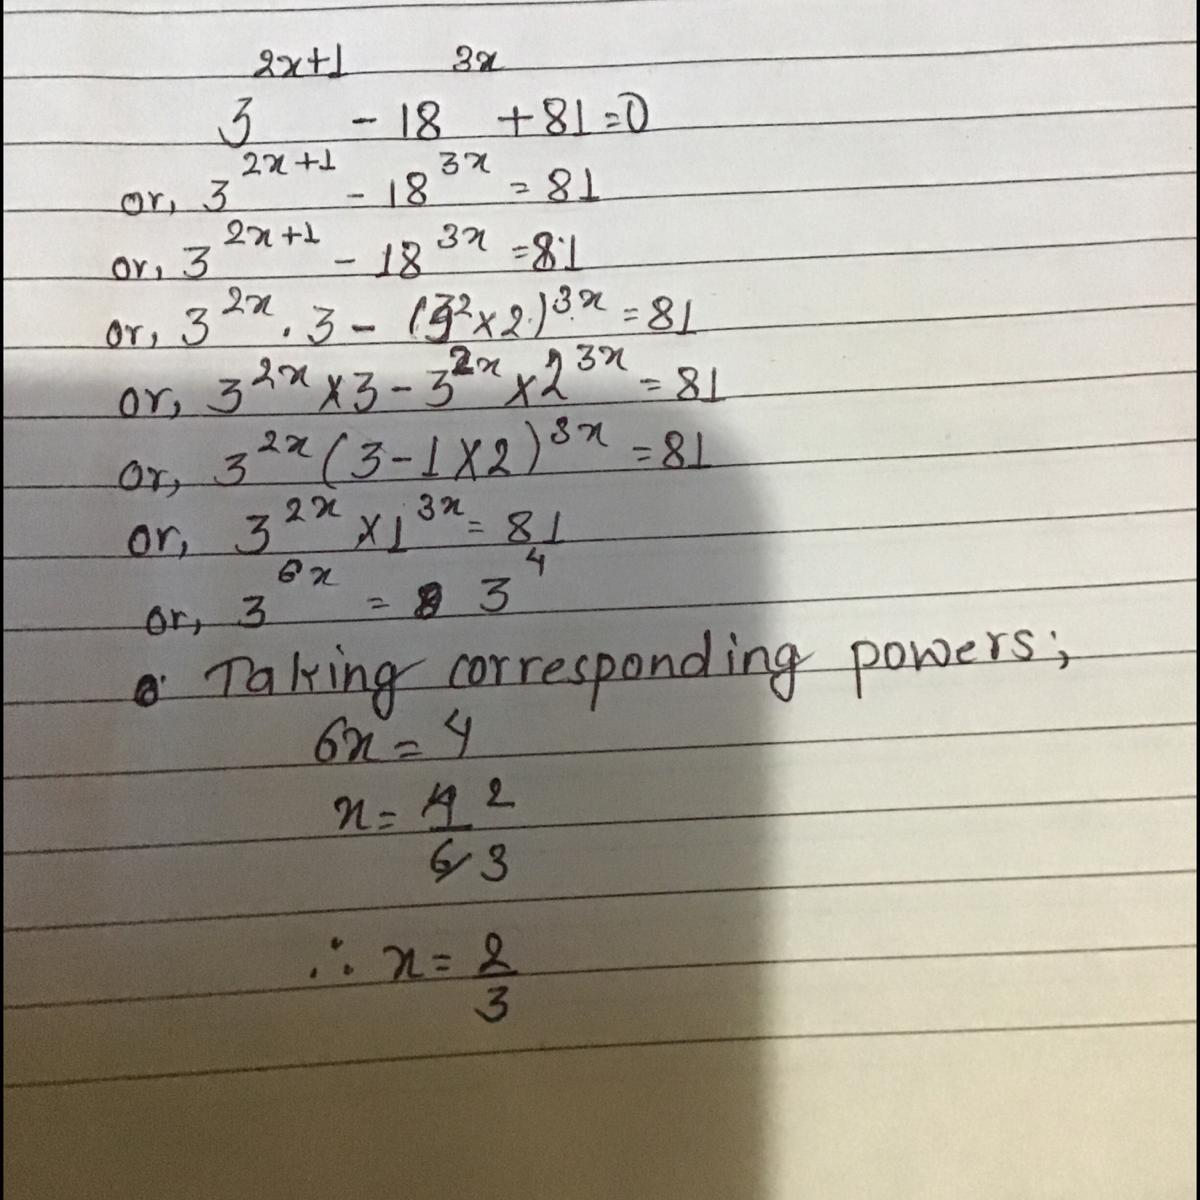 3^{2x+1} - 18^{3x} + 81 = 0
or, 3^{2x+1} - 18^{3x} = 81
or, 3^{2x+1} - 18^{3x} = 81
or, 3^{2x} . 3 - (3^2 × 2)^{3x} = 81
or, 3^{2x} × 3 - 3^{2x} × 2^{3x} = 81
or, 3^{2x} (3 - 1 × 2)^{3x} = 81
or, 3^{2x} × 1^{3x} = 81
or, 3^{6x} = 3^4
Taking corresponding powers;
6x = 4
x = 4/6 2/3
∴ x = 2/3